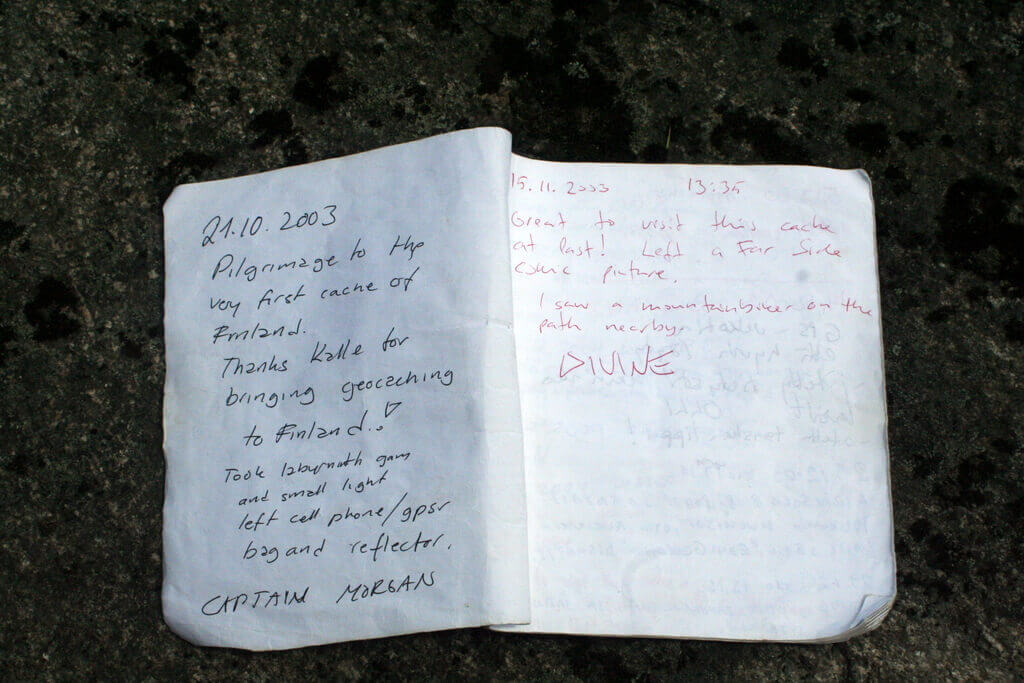 21.10.2003
Pilgrimage to the
very first cache of
Finland.
Thanks Kalle for
bringing geocaching
to Finland!
Took labyrinth gam
and small light
left cell phone/gpsr
bag and reflector.
CAPTAIN MORGAN
15.11.2003 13:35
Great to visit this cache
at last! Left a Far Side
comic picture.
I saw a mountainbiker on the
path nearby.
DIVINE